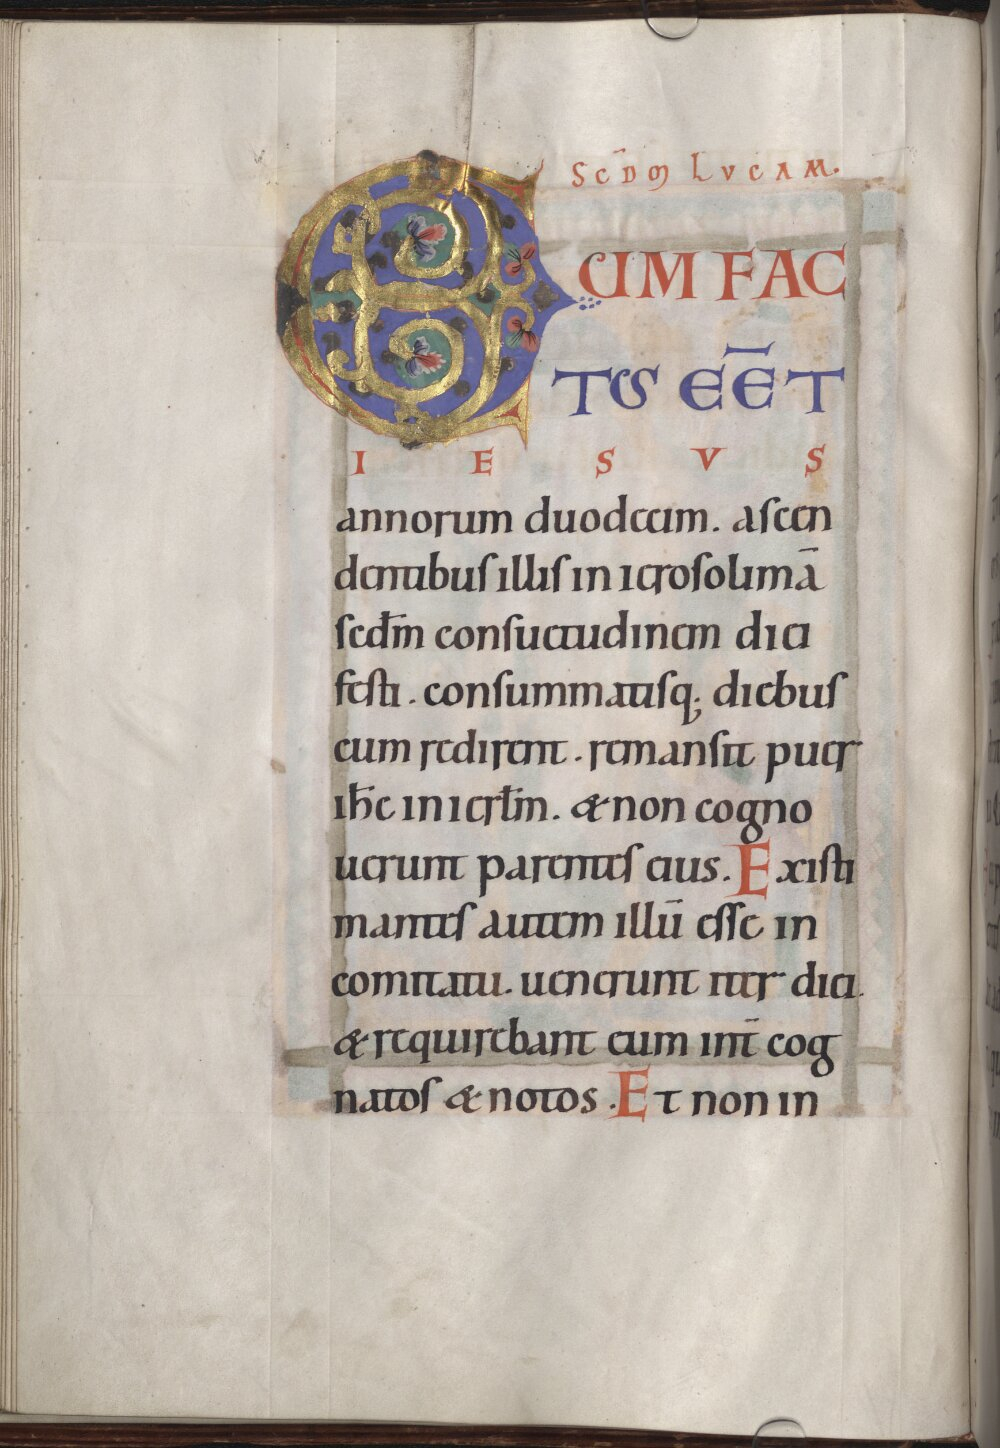 Scd̄m LVCAM.
E CUM FAC
TUS EĒT
IESVS
annorum duodecim. ascen
dentibus illis in ierosolimā
scdm̄ consuetudinem diei
festi. consummatisq; diebus
cum redirent. remansit puer
ihc̄ in ierl̄m. & non cogno
uerunt parentes eius. Existi
mantes autem illū esse in
comitatu. uenerunt iter diei.
& requirebant eum int̄ cog
natos & notos. Et non in